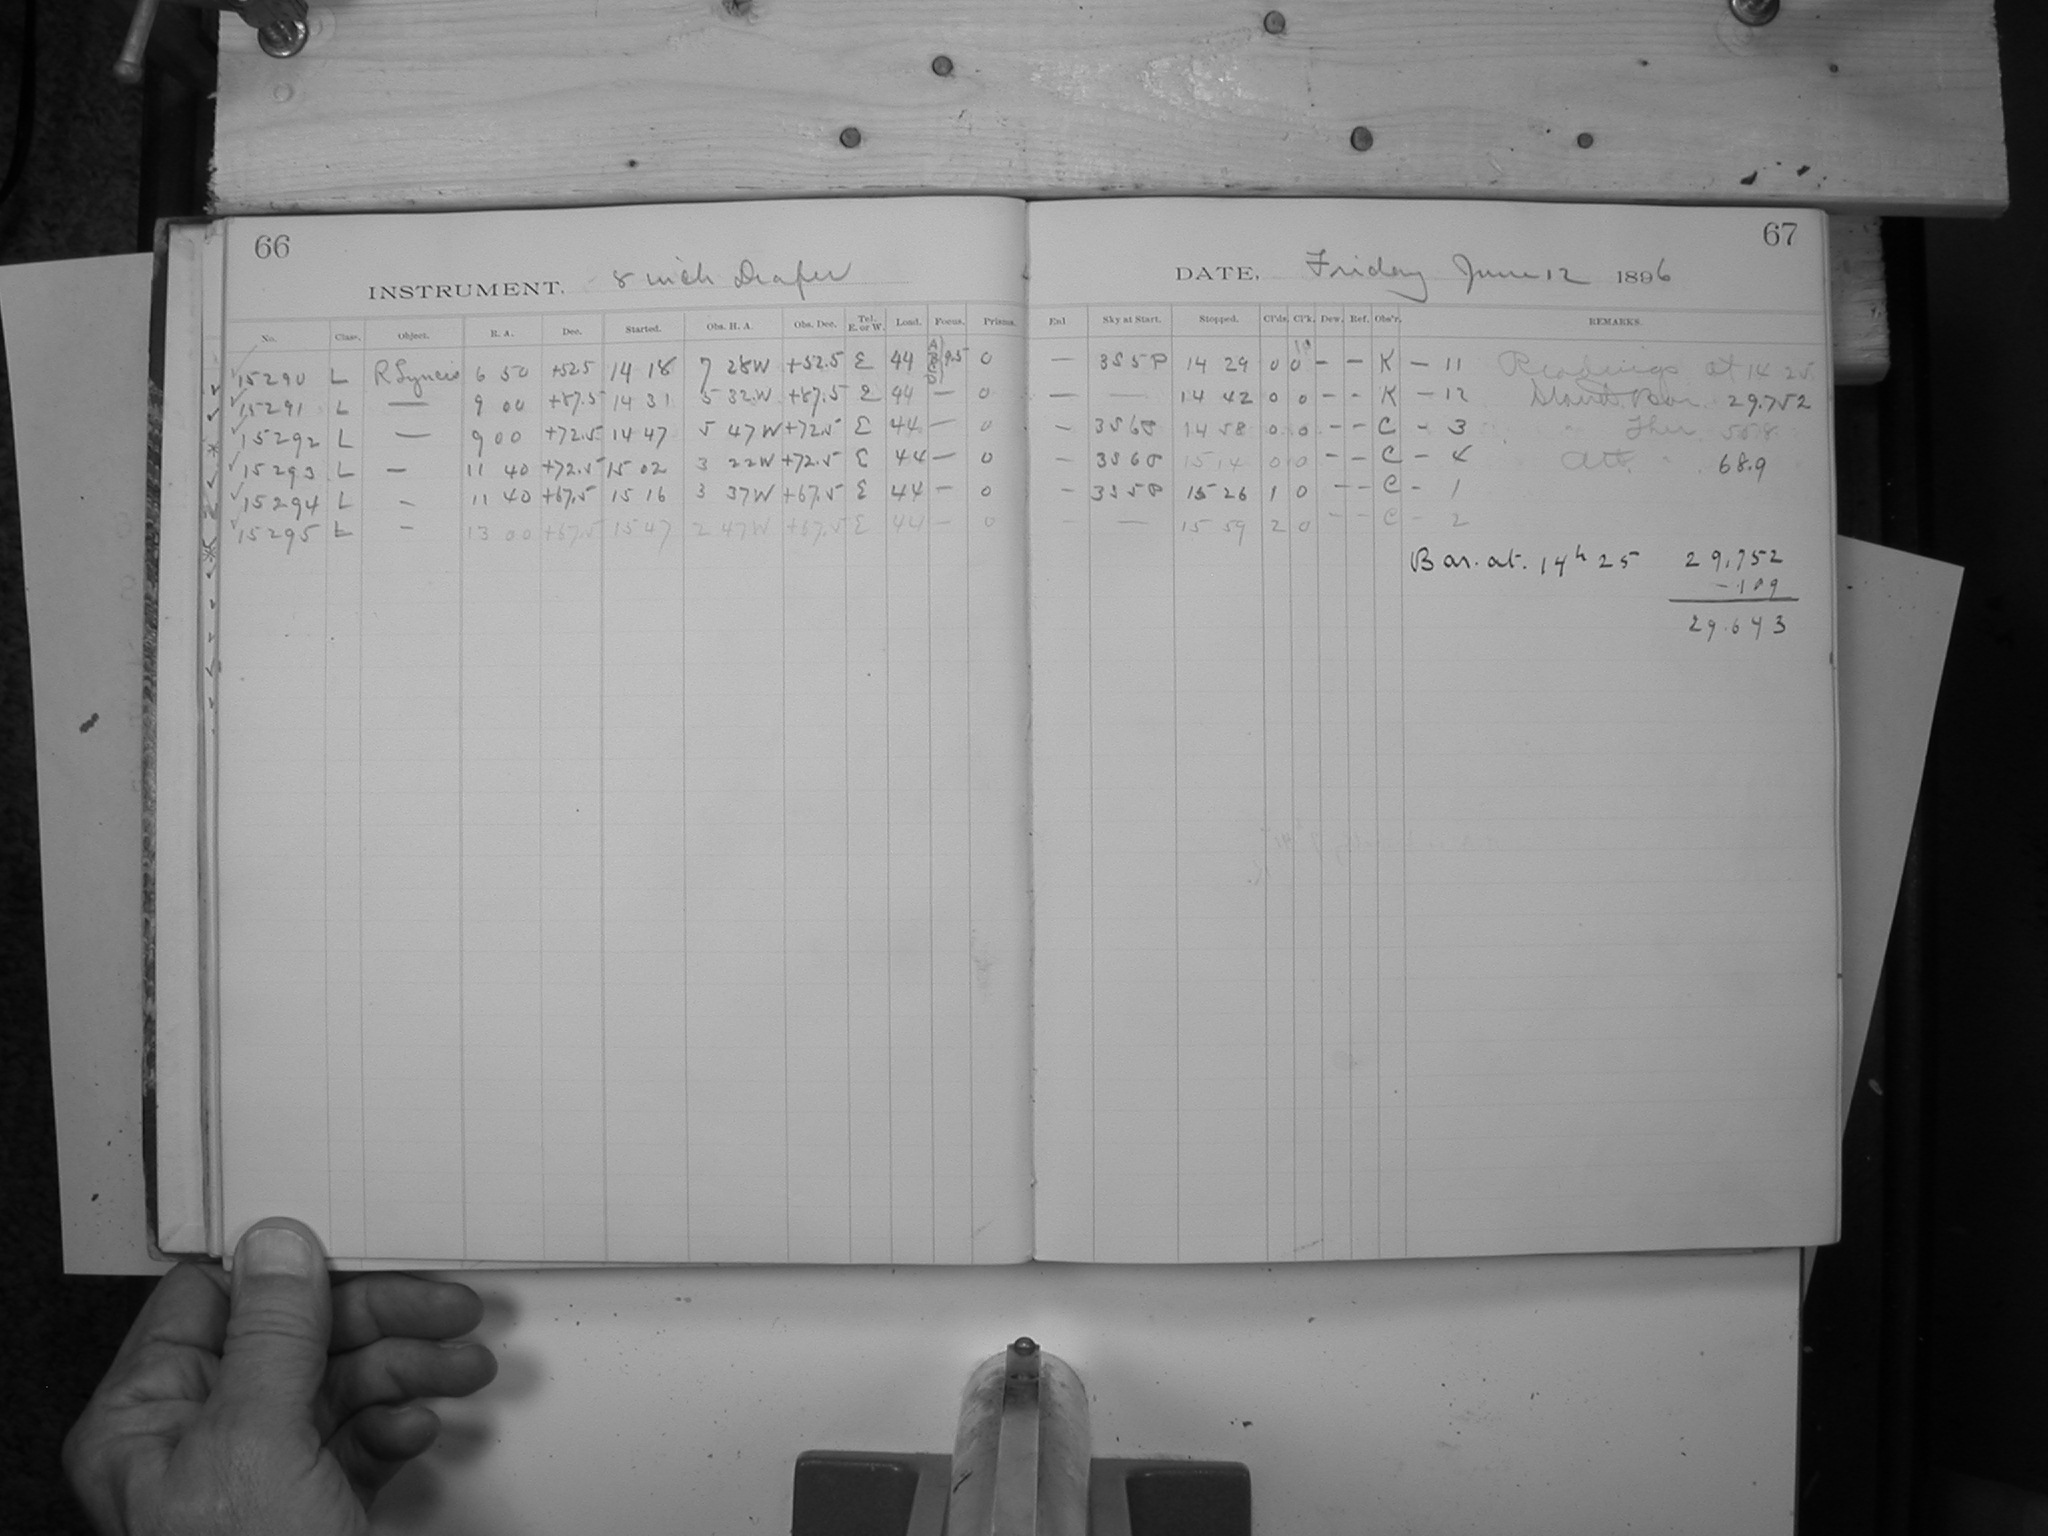 66
INSTRUMENT. 8 inch Draper
No. Class. Object. R. A. Dec. Started. Obs. H. A. Obs. Dec. Tel. E. or W. Load. Focus. Prisms.
15290 L R Lyncis 6 50 +52.5 14 18 7 28W +52.5 E 44 A B C D} 9.5 0
15291 L — 9 00 +87.5 14 31 5 32W +87.5 E 44 — 0
15292 L — 9 00 +72.5 14 47 5 47W +72.5 E 44 — 0
15293 L — 11 40 +72.5 15 02 3 22W +72.5 E 44 — 0
15294 L — 11 40 +67.5 15 16 3 37W +67.5 E 44 — 0
15295 L — 13 00 +67.5 15 47 2 47W +67.5 E 44 — 0
67
DATE, Friday June 12 1896
Enl Sky at Start. Stopped. Cl'ds. Cl'k. Dew. Ref. Obs'r. REMARKS.
— 14 29 0 0 — — K — 11 Readings at 14 25
— — 14 42 0 0 - - K — 12 Bar. 29.752
— 14 58 0 0 - - C - 3 Ther
— 15 14 0 0 - - C - 4 Att. " 68.9
— 15 26 1 0 - - C - 1
- — 15 59 2 0 - - C - 2
Bar. at. 14h 25 29.752
-.109
29.643